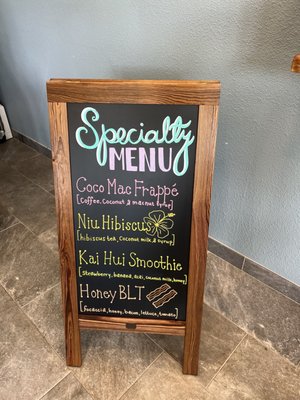 Specialty
MENU
Coco Mac Frappé
[Coffee, Coconut & macnut syrup]
Niu Hibiscus
[hibiscus tea, coconut milk & syrup]
Kai Hui Smoothie
[strawberry, banana, acai, coconut milk, honey]
Honey BLT
[focaccia, honey, bacon, lettuce, tomato]